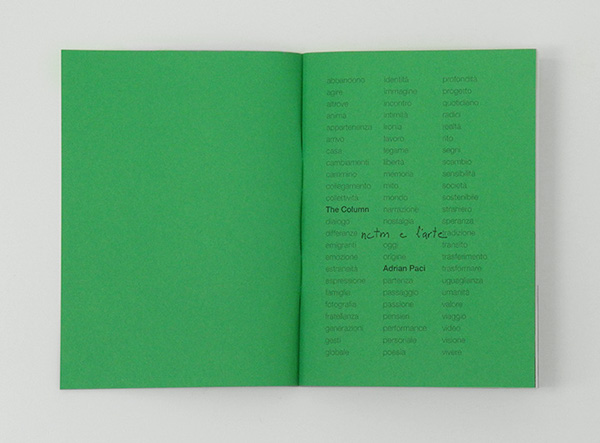 abbandono
agire
altrove
anima
appartenenza
arrivo
casa
cambiamenti
cammino
collegamento
collettività
The Column
dialogo
differenze
emigranti
emozione
estraneità
espressione
famiglia
fotografia
fratellanza
generazioni
gesti
globale
identità
immagine
incontro
intimità
lavoro
libertà
memoria
mito
mondo
narrazione
nostalgia
nctm e l'arte
oggi
origine
Adrian Paci
partenza
passaggio
passione
pensieri
performance
personale
poesia
profondità
progetto
quotidiano
radici
realtà
rito
segni
scambio
sensibilità
società
sostenibile
straniero
speranza
tradizione
transito
trasferimento
trasformare
uguaglianza
umanità
valore
viaggio
video
visione
vivere